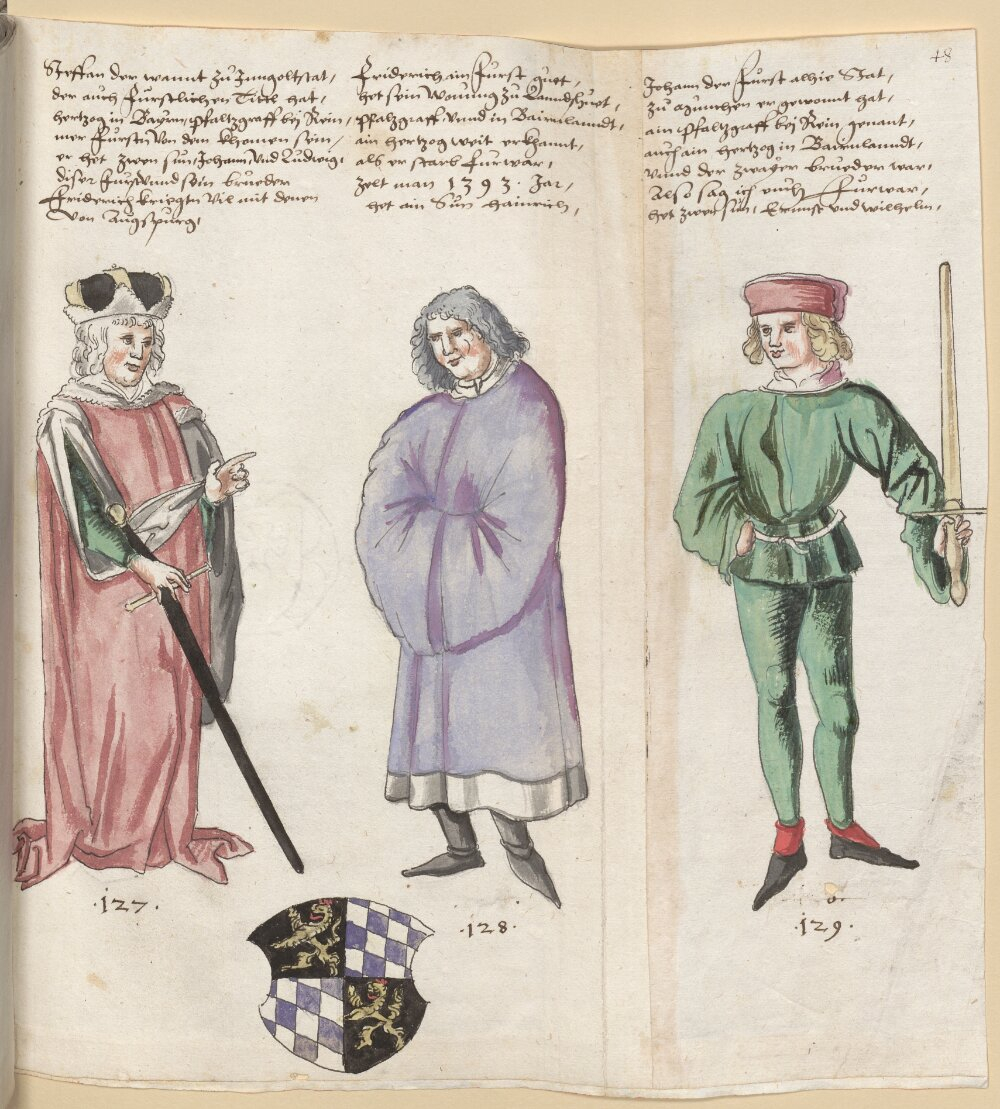 48
Steffan der wannt zu Inngolstat,
der auch Fürstlichen Tittl hat,
hertzog in Bayrn, Pfaltzgraff bej Rein,
mer Fürstn von dem khomen sein,
er het zwen sun, Johann, und Ludwig,
diser Fürst unnd sein brueder
Friderich kriegtn vil mit denen
von Augspurg,
Friderich ain Fürst guet,
het sein wonung zu Lanndshuet,
Pfalzgraff unnd in Bairnlanndt,
ain hertzog weit erkhannt,
als er starb Furwar,
Zelt man 1393. Jar,
het ain Sun Hainrich,
Johann der Fürst alhie Stat,
zu München er gewonnt hat,
ain Pfaltzgraff bej Rein, genant,
auch ain hertzog in Bairnlanndt,
unnd der zwaÿer brueder war,
Also sag ich euch Furwar,
het zwen sun, Ernnst und wilhelm,
.127.
.128.
.129.